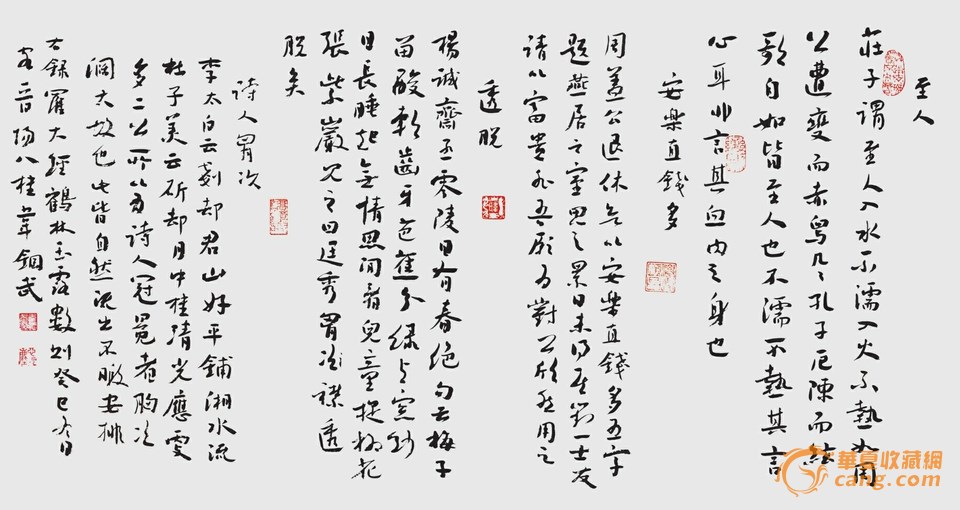 至人
莊子謂至人入水不濡入火不熱如周
公遭變而赤舄几几孔子厄陳而絃
歌自如皆至人也不濡不熱其言
心耳非言其血肉之身也
安樂直錢多
周益公退休欲以安樂直錢多五字
題燕居之室思之累日未得屬對一士友
請以富貴非吾願為對公欣然用之
透脫
楊誠齋丞零陵日有春絕句云梅子
留酸軟齒牙芭蕉分綠與窗紗
日長睡起無情思閒看兒童捉柳花
張紫巖見之曰廷秀胸次襟透
脫矣
詩人胷次
李太白云剗却君山好平鋪湘水流
杜子美云斫却月中桂清光應更
多二公所以為詩人冠冕者胸次
濶大故也此皆自然流出不暇安排
右錄羅大經鶴林玉露數則癸巳冬日
八桂韋錮武
華夏收藏網
cang.com